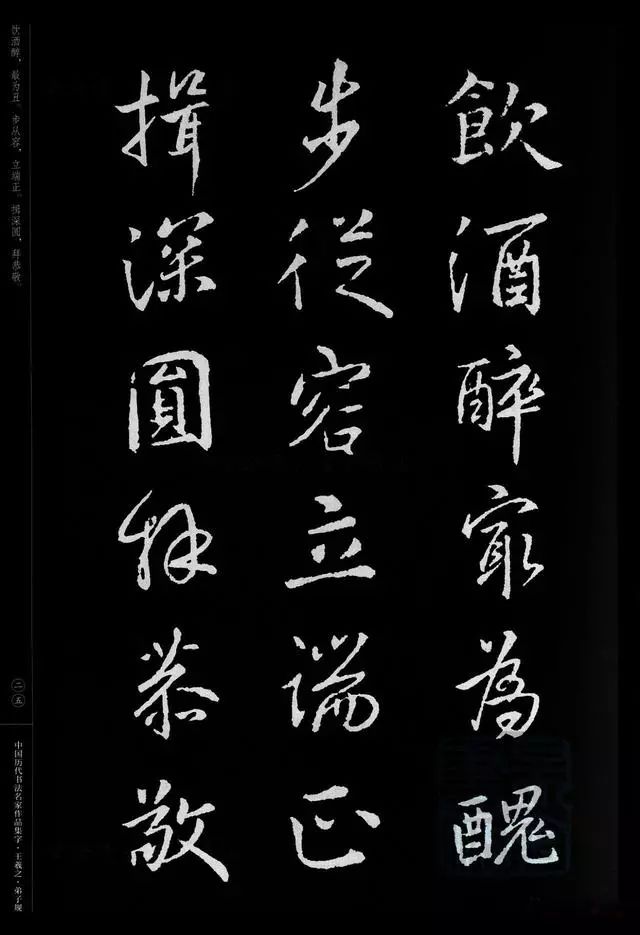 飲酒醉寂為醜
步從容立端正
揖深圓拜恭敬
饮酒醉，最为丑。步从容，立端正。揖深圆，拜恭敬。
二五
中国历代书法名家作品集字·王羲之·弟子规